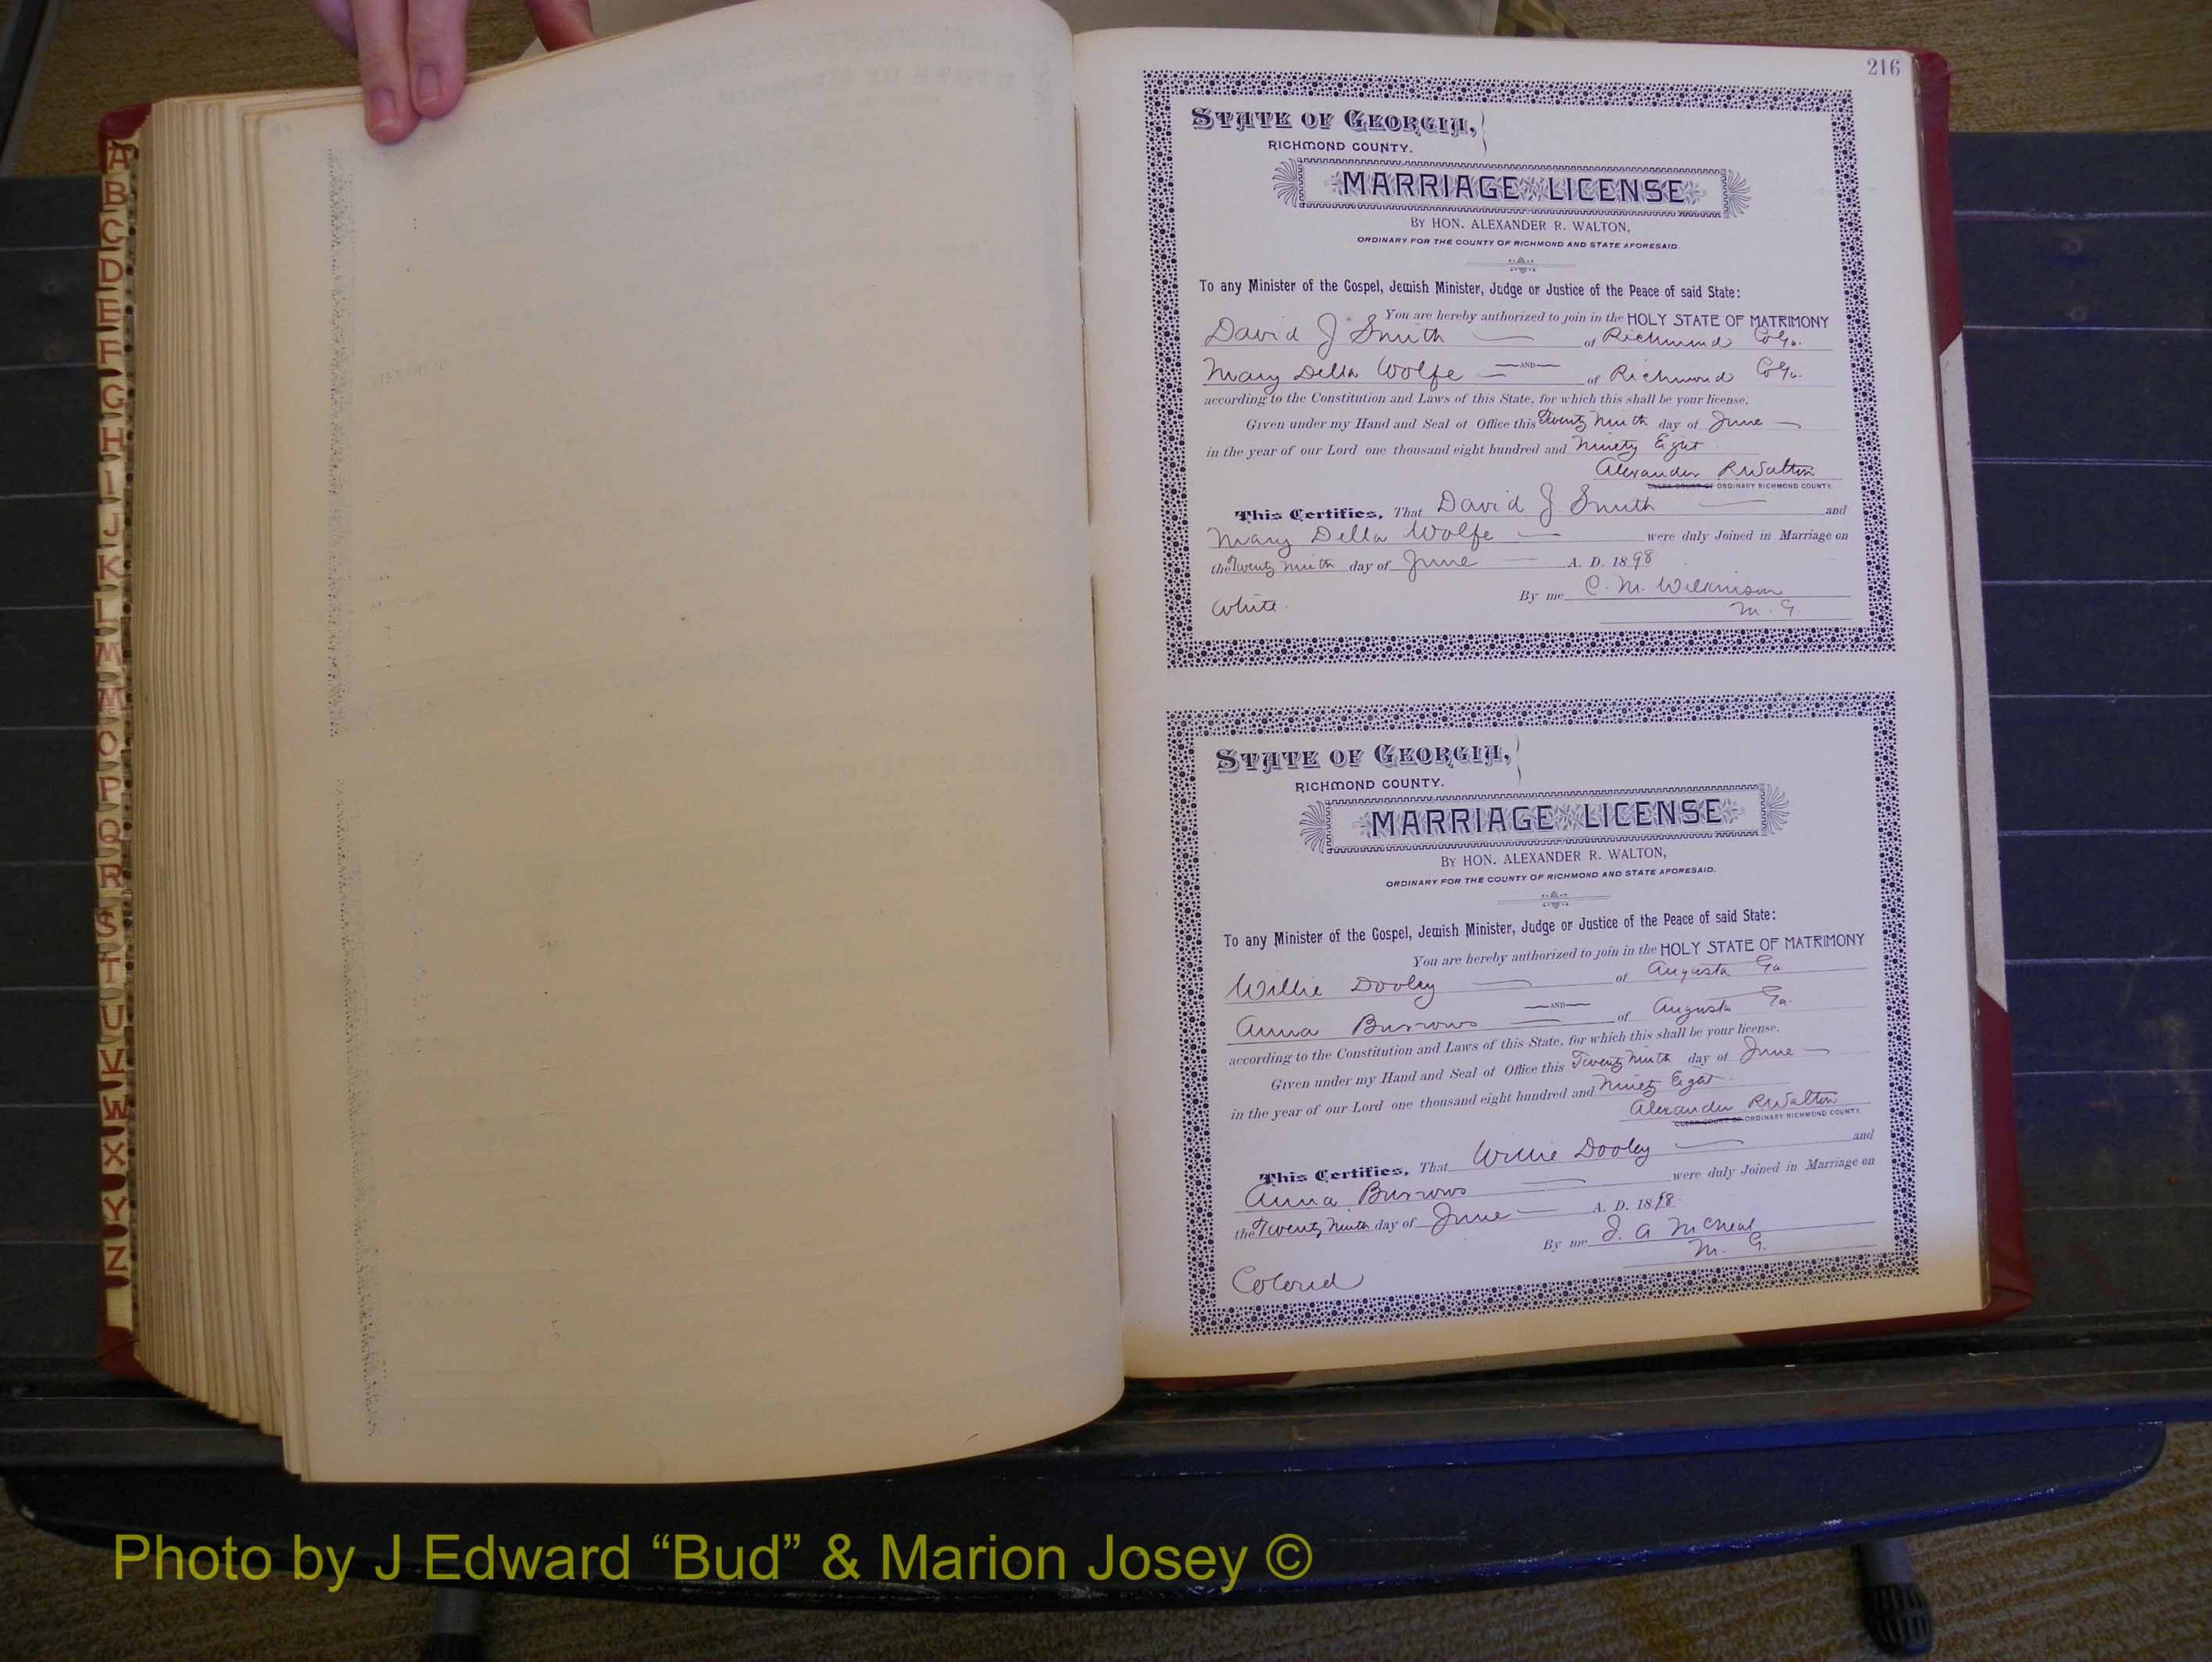 A
B
C
D
E
F
G
H
I
J
K
L
M
Mc
O
P
Q
R
S
T
U
V
W
X
Y
Z
216
STATE OF GEORGIA,
RICHMOND COUNTY.
MARRIAGE LICENSE
BY HON. ALEXANDER R. WALTON,
ORDINARY FOR THE COUNTY OF RICHMOND AND STATE AFORESAID.
To any Minister of the Gospel, Jewish Minister, Judge or Justice of the Peace of said State:
You are hereby authorized to join in the HOLY STATE OF MATRIMONY
David J Smith of Richmond Co Ga.
AND
Mary Della Wolfe of Richmond Co Ga.
according to the Constitution and Laws of this State, for which this shall be your license.
Given under my Hand and Seal of Office this Twenty Ninth day of June
in the year of our Lord one thousand eight hundred and Ninety Eight
Alexander R Walton
CLERK COURT OF ORDINARY RICHMOND COUNTY.
This Certifies, That David J. Smith and
Mary Della Wolfe were duly Joined in Marriage on
the Twenty Ninth day of June A. D. 1898
By me C. M. Wilkinson
White. M. G.
STATE OF GEORGIA,
RICHMOND COUNTY.
MARRIAGE LICENSE
BY HON. ALEXANDER R. WALTON,
ORDINARY FOR THE COUNTY OF RICHMOND AND STATE AFORESAID.
To any Minister of the Gospel, Jewish Minister, Judge or Justice of the Peace of said State:
You are hereby authorized to join in the HOLY STATE OF MATRIMONY
Willie Dooley of Augusta Ga
AND
Anna Burrows of Augusta Ga.
according to the Constitution and Laws of this State, for which this shall be your license.
Given under my Hand and Seal of Office this Twenty Ninth day of June
in the year of our Lord one thousand eight hundred and Ninety Eight.
Alexander R Walton
CLERK COURT OF ORDINARY RICHMOND COUNTY.
This Certifies, That Willie Dooley and
Anna Burrows were duly Joined in Marriage on
the Twenty Ninth day of June A. D. 1898.
By me J. A McNeal
M. G.
Colored
Photo by J Edward “Bud” & Marion Josey ©